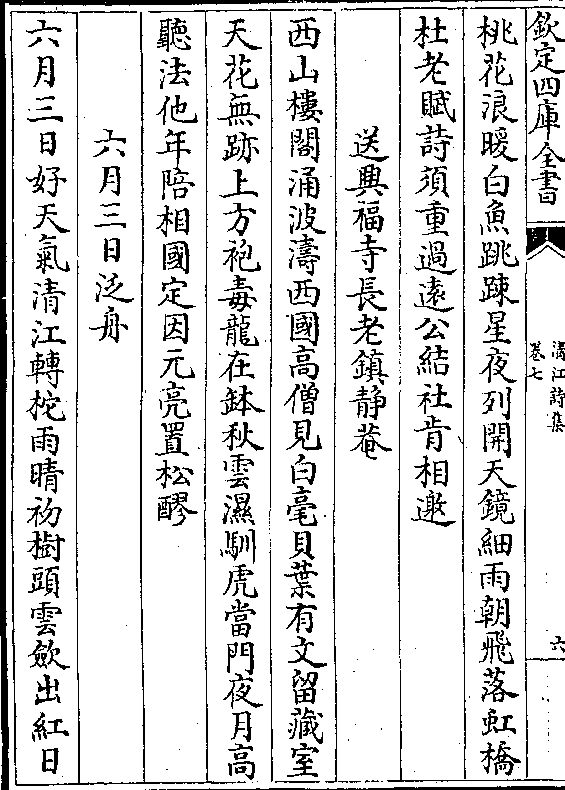 欽定四庫全書
清江詩集
卷七
六
桃花浪暖白魚跳踈星夜列開天鏡細雨朝飛落虹橋
杜老賦詩須重過遠公結社肯相邀
送興福寺長老鎮静菴
西山樓閣涌波濤西國高僧見白毫貝葉有文留藏室
天花無跡上方袍毒龍在鉢秋雲濕馴虎當門夜月高
聽法他年陪相國定因元亮置松醪
六月三日泛舟
六月三日好天氣清江轉柁雨晴初樹頭雲斂出紅日